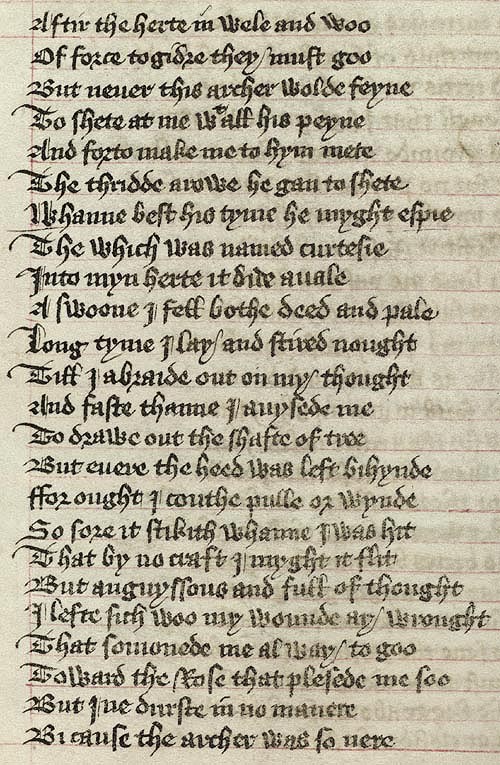 Aftir the herte in wele and woo
Of force togidre they / must goo
But neuer this archer wolde feyne
To shete at me wt all his peyne
And forto make me to hym mete
The thridde arowe he gan to shete
Whanne best his tyme he myght espie
The which was named curtesie
Into myn herte it dide auale
A swoone I fell bothe deed and pale
Long tyme I lay / and stired nought
Till I abraide out on my / thought
And faste thanne I auysede me
To drawe out the shafte of tree
But euere the heed was left bihynde
ffor ought I couthe pulle or wynde
So sore it stikith whanne I was hit
That by no craft I myght it flit
But anguyssous and full of thought
I lefte sich woo my wounde ay / wrought
That somonede me al way / to goo
Toward the Rose that plesede me soo
But I ne durste in no manere
Bi cause the archer was so nere